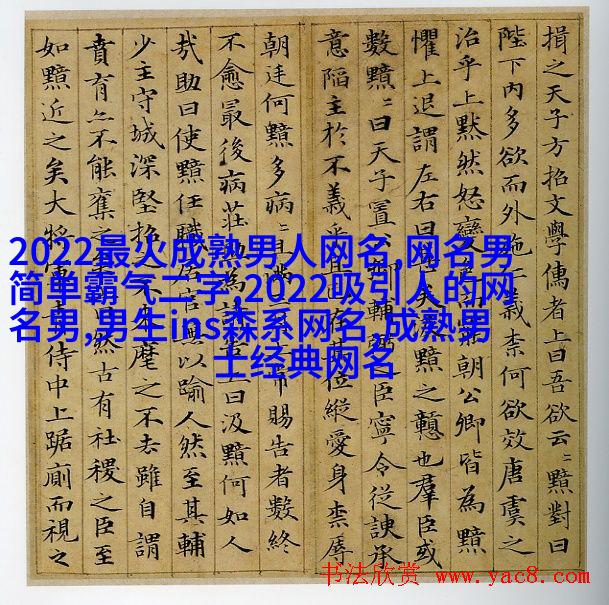 揖之天子方招文學儒者上曰吾欲云〻黯對曰
陛下內多欲而外施仁義柰何欲效唐虞之
治乎上黙然怒變色而罷朝公卿皆為黯
懼上退謂左右曰甚矣黯之戇也羣臣或
數黯〻曰天子置公卿輔弼之臣寧令從諛承
意陷主於不義乎且已在其位縱愛身柰辱
朝廷何黯多病〻且滿三月上常賜告者數終
不愈最後病莊助為請告上曰汲黯何如人
哉助曰使黯任職居官無以踰人然至其輔
少主守城深堅招之不來麾之不去雖自謂
賁育亦不能奪之矣上曰然古有社稷之臣至
如黯近之矣大將軍青侍中上踞廁而視之
2022最火成熟男人网名,网名男
简单霸气二字,2022吸引人的网
名男,男生ins森系网名,成熟男
士经典网名
书法欣赏 www.yac8.com